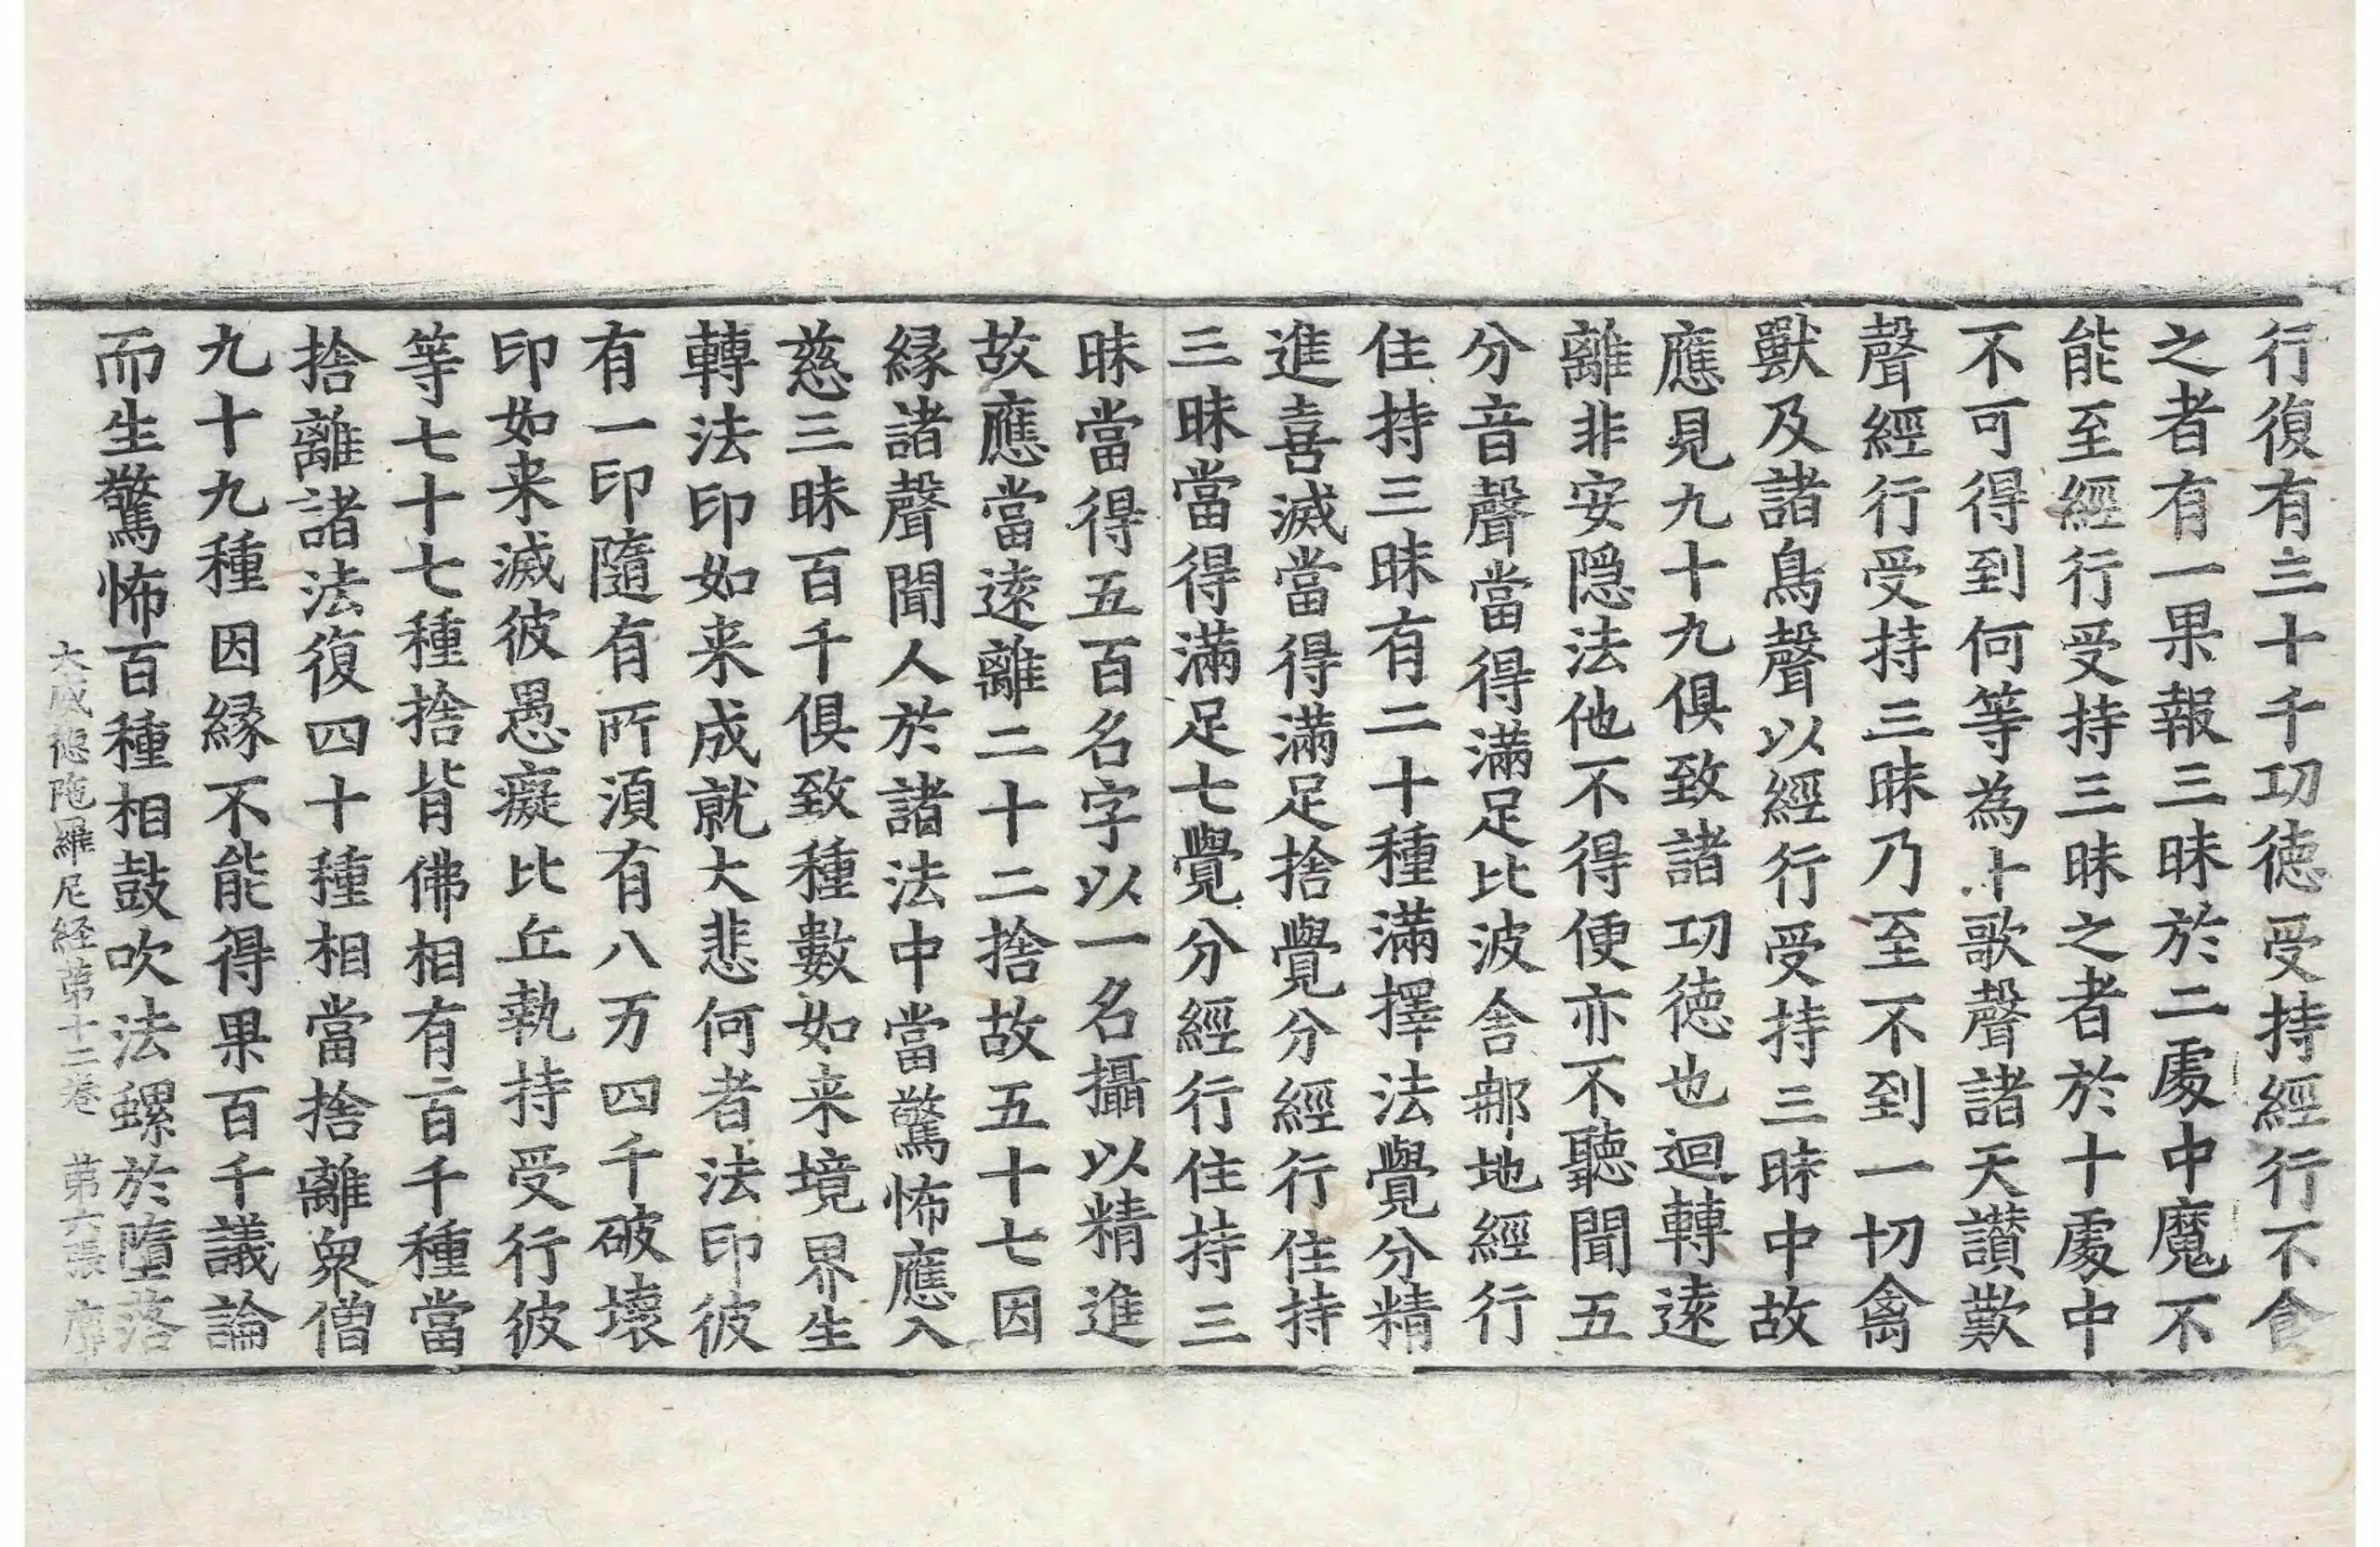 行復有三十千功德受持經行不食
之者有一果報三昧於二處中魔不
能至經行受持三昧之者於十處中
不可得到何等為十歌聲諸天讃歎
聲經行受持三昧乃至不到一切禽
獸及諸鳥聲以經行受持三昧中故
應見九十九俱致諸功德也迴轉遠
離非安隱法他不得便亦不聽聞五
分音聲當得滿足比波舍那地經行
住持三昧有二十種滿擇法覺分精
進喜滅當得滿足捨覺分經行住持
三昧當得滿足七覺分經行住持三
昧當得五百名字以一名攝以精進
故應當遠離二十二捨故五十七因
緣諸聲聞人於諸法中當驚怖應入
慈三昧百千俱致種數如来境界生
轉法印如来成就大悲何者法印彼
有一印隨有所須有八万四千破壞
印如来滅彼愚癡比丘執持受行彼
等七十七種捨背佛相有二百千種當
捨離諸法復四十種相當捨離衆僧
九十九種因緣不能得果百千議論
而生驚怖百種相鼓吹法螺於墮落
大威德陁羅尼経第十二卷 第六張 席